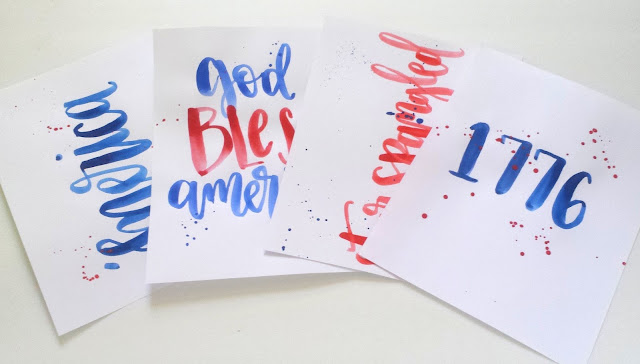 'murica
god
BLES
amer
spangled
1776